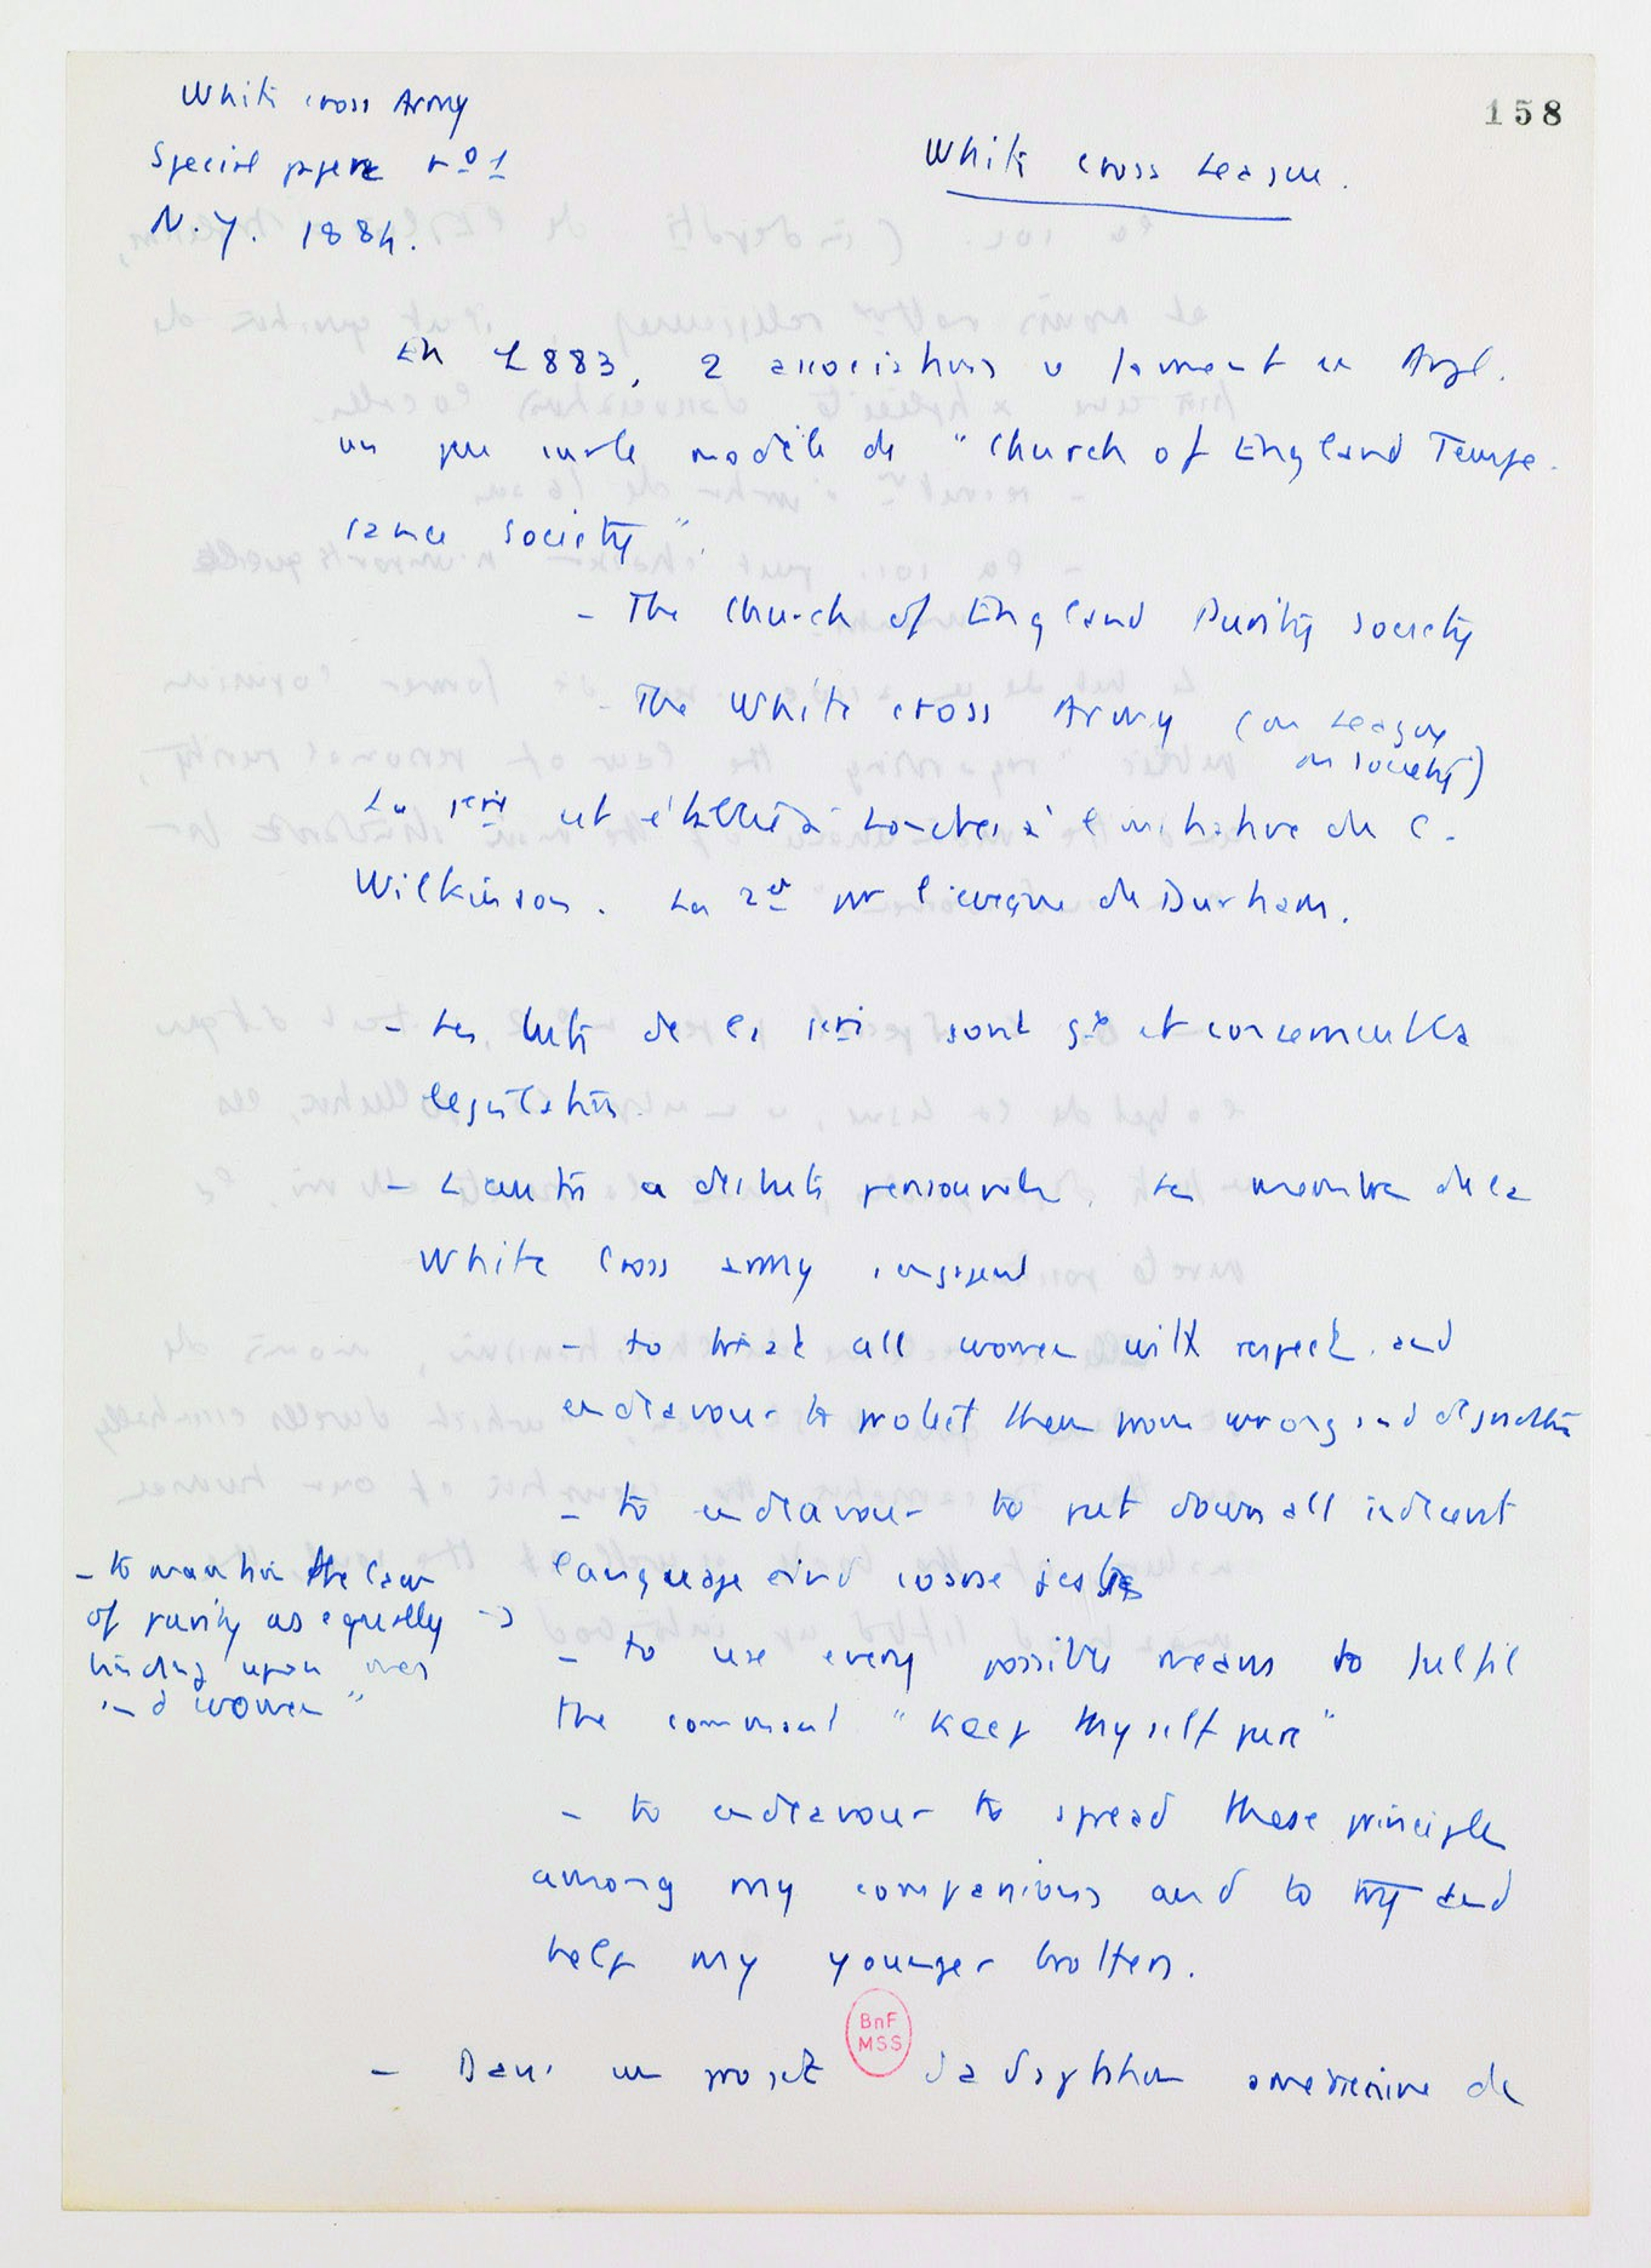 158
White cross Army
Special papers n° 1
N.Y. 1884.
White cross League.
En 1883, 2 associations se forment en Angl.
un peu sur le modèle de "Church of England Tempe-
rance Society".
- The Church of England Purity Society
- The White cross Army (ou League
ou society)
La 1ère est établie à Londres à l'initiative de C.
Wilkinson. La 2e par l'évêque de Durham.
- Les buts de la 1ère sont gx et concernent la
législation.
- L'autre a des buts personnels. Les membres de la
White Cross Army s'engagent
- to treat all women with respect and
endeavour to protect them from wrong and degradation
- to endeavour to put down all indecent
language and coarse jests
- to maintain the law
of purity as equally
binding upon men
and women"
- to use every possible means to fulfil
the command "Keep thyself pure"
- to endeavour to spread these principles
among my companions and to try and
help my younger brothers.
BnF
MSS
- Dans un projet d'adaptation américaine de